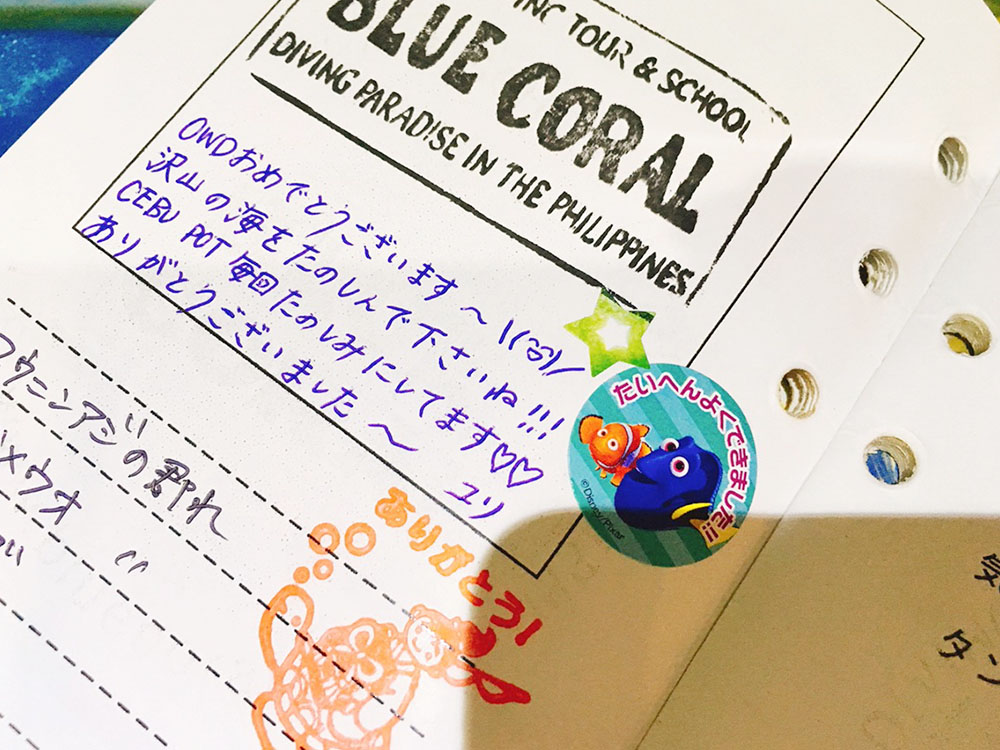 TOUR & SCHOOL
BLUE CORAL
DIVING PARADISE IN THE PHILIPPINES
OWDおめでとうございます〜\(^^)/
沢山の海をたのしんで下さいね!!!
CEBU POT 毎回たのしみにしてます♡♡
ありがとうございました〜
ユリ
たいへんよくできました!!
©Disney/Pixar
ウニンアジの群れ
メウオ
ありがとう!
気
タン